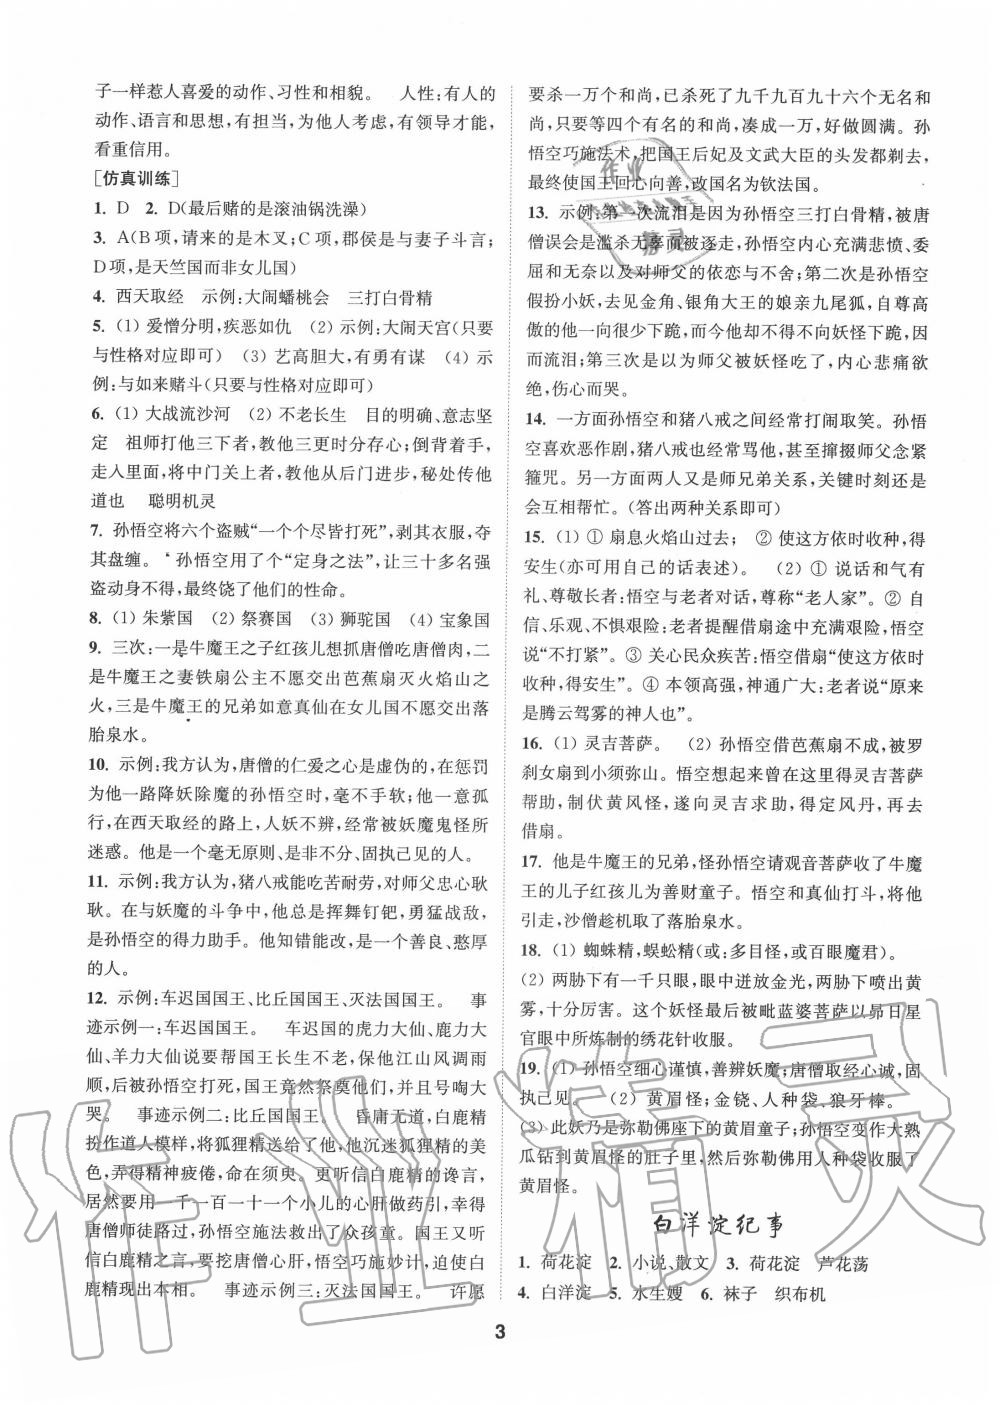 子一样惹人喜爱的动作、习性和相貌。　人性:有人的
动作、语言和思想,有担当,为他人考虑,有领导才能,
看重信用。
[仿真训练]
1. D　2. D(最后赌的是滚油锅洗澡)
3. A(B项,请来的是木叉;C项,郡侯是与妻子斗言;
D项,是天竺国而非女儿国)
4. 西天取经　示例:大闹蟠桃会　三打白骨精
5. (1) 爱憎分明,疾恶如仇　(2) 示例:大闹天宫(只要
与性格对应即可)　(3) 艺高胆大,有勇有谋　(4) 示
例:与如来赌斗(只要与性格对应即可)
6. (1) 大战流沙河　(2) 不老长生　目的明确、意志坚
定　祖师打他三下者,教他三更时分存心;倒背着手,
走入里面,将中门关上者,教他从后门进步,秘处传他
道也　聪明机灵
7. 孙悟空将六个盗贼“一个个尽皆打死”,剥其衣服,夺
其盘缠。　孙悟空用了个“定身之法”,让三十多名强
盗动身不得,最终饶了他们的性命。
8. (1) 朱紫国　(2) 祭赛国　(3) 狮驼国　(4) 宝象国
9. 三次:一是牛魔王之子红孩儿想抓唐僧吃唐僧肉,二
是牛魔王之妻铁扇公主不愿交出芭蕉扇灭火焰山之
火,三是牛魔王的兄弟如意真仙在女儿国不愿交出落
胎泉水。
10. 示例:我方认为,唐僧的仁爱之心是虚伪的,在惩罚
为他一路降妖除魔的孙悟空时,毫不手软;他一意孤
行,在西天取经的路上,人妖不辨,经常被妖魔鬼怪所
迷惑。他是一个毫无原则、是非不分、固执己见的人。
11. 示例:我方认为,猪八戒能吃苦耐劳,对师父忠心耿
耿。在与妖魔的斗争中,他总是挥舞钉钯,勇猛战敌,
是孙悟空的得力助手。他知错能改,是一个善良、憨厚
的人。
12. 示例:车迟国国王、比丘国国王、灭法国国王。　事
迹示例一:车迟国国王。　车迟国的虎力大仙、鹿力大
仙、羊力大仙说要帮国王长生不老,保他江山风调雨
顺,后被孙悟空打死,国王竟然祭奠他们,并且号啕大
哭。　事迹示例二:比丘国国王。　昏庸无道,白鹿精
扮作道人模样,将狐狸精送给了他,他沉迷狐狸精的美
色,弄得精神疲倦,命在须臾。更听信白鹿精的谗言,
居然要用一千一百一十一个小儿的心肝做药引,幸得
唐僧师徒路过,孙悟空施法救出了众孩童。国王又听
信白鹿精之言,要挖唐僧心肝,悟空巧施妙计,打得白
鹿精现出本相。　事迹示例三:灭法国国王。　许愿
要杀一万个和尚,已杀死了九千九百九十六个无名和
尚,只要等四个有名的和尚,凑成一万,好做圆满。孙
悟空巧施法术,把国王后妃及文武大臣的头发都剃去,
最终使国王回心向善,改国名为钦法国。
13. 示例:第一次流泪是因为孙悟空三打白骨精,被唐
僧误会是滥杀无辜而被逐走,孙悟空内心充满悲愤、委
屈和无奈以及对师父的依恋与不舍;第二次是孙悟空
假扮小妖,去见金角、银角大王的娘亲九尾狐,自尊高
傲的他一向很少下跪,而今却不得不向妖怪下跪,因
而流泪;第三次是以为师父被妖怪吃了,内心悲痛欲
绝,伤心而哭。
14. 一方面孙悟空和猪八戒之间经常打闹取笑。孙悟
空喜欢恶作剧,猪八戒也经常骂他,甚至撺掇师父念紧
箍咒。另一方面两人又是师兄弟关系,关键时刻还是
会互相帮忙。(答出两种关系即可)
15. (1) ① 扇息火焰山过去;　② 使这方依时收种,得
安生(亦可用自己的话表述)。　(2) ① 说话和气有
礼、尊敬长者:悟空与老者对话,尊称“老人家”。② 自
信、乐观、不惧艰险:老者提醒借扇途中充满艰险,悟空
说“不打紧”。③ 关心民众疾苦:悟空借扇“使这方依时
收种,得安生”。④ 本领高强,神通广大:老者说“原来
是腾云驾雾的神人也”。
16. (1) 灵吉菩萨。　(2) 孙悟空借芭蕉扇不成,被罗
刹女扇到小须弥山。悟空想起来曾在这里得灵吉菩萨
帮助,制伏黄风怪,遂向灵吉求助,得定风丹,再去
借扇。
17. 他是牛魔王的兄弟,怪孙悟空请观音菩萨收了牛魔
王的儿子红孩儿为善财童子。悟空和真仙打斗,将他
引走,沙僧趁机取了落胎泉水。
18. (1) 蜘蛛精,蜈蚣精(或:多目怪,或百眼魔君)。
(2) 两胁下有一千只眼,眼中迸放金光,两胁下喷出黄
雾,十分厉害。这个妖怪最后被毗蓝婆菩萨以昴日星
官眼中所炼制的绣花针收服。
19. (1) 孙悟空细心谨慎,善辨妖魔;唐僧取经心诚,固
执己见。　(2) 黄眉怪;金铙、人种袋、狼牙棒。
(3) 此妖乃是弥勒佛座下的黄眉童子;孙悟空变作大熟
瓜钻到黄眉怪的肚子里,然后弥勒佛用人种袋收服了
黄眉怪。
白洋淀纪事
1. 荷花淀　2. 小说、散文　3. 荷花淀　芦花荡
4. 白洋淀　5. 水生嫂　6. 袜子　织布机
3
作业精灵